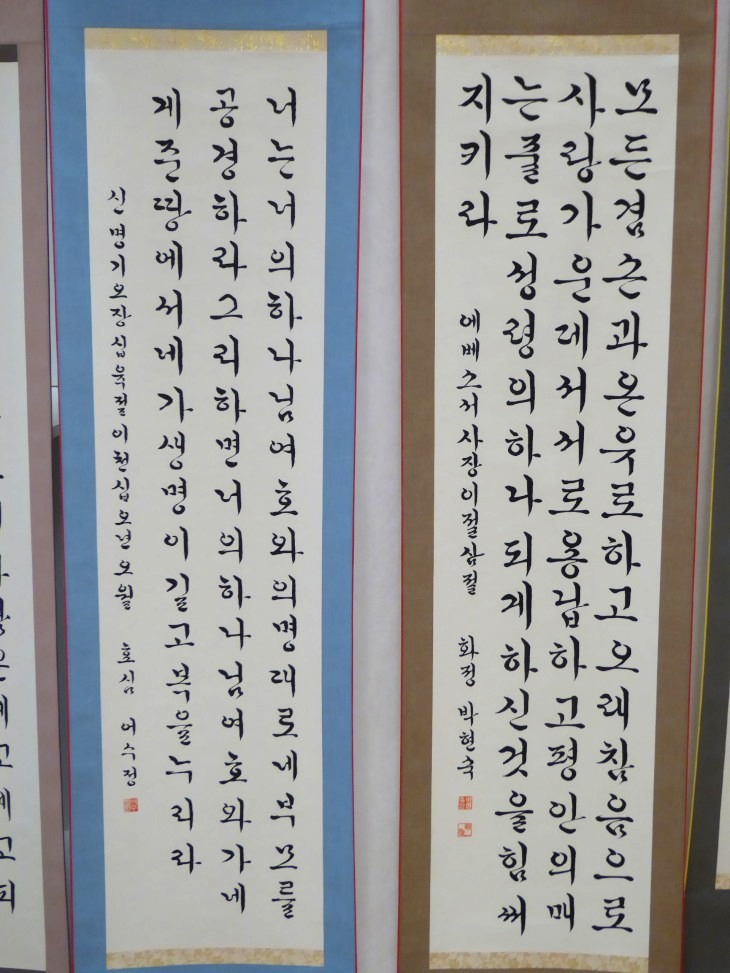 모든겸손과온유로하고오래참음으로
사랑가운데서서로용납하고평안의매
는줄로성령의하나되게하신것을힘써
지키라
에베소서사장이절삼절 화정 박현숙
너는너의하나님여호와의명대로네부모를
공경하라그리하면너의하나님여호와가네
게준땅에서네가생명이길고복을누리라
신명기오장십육절이천십오년오월 효심 어수정